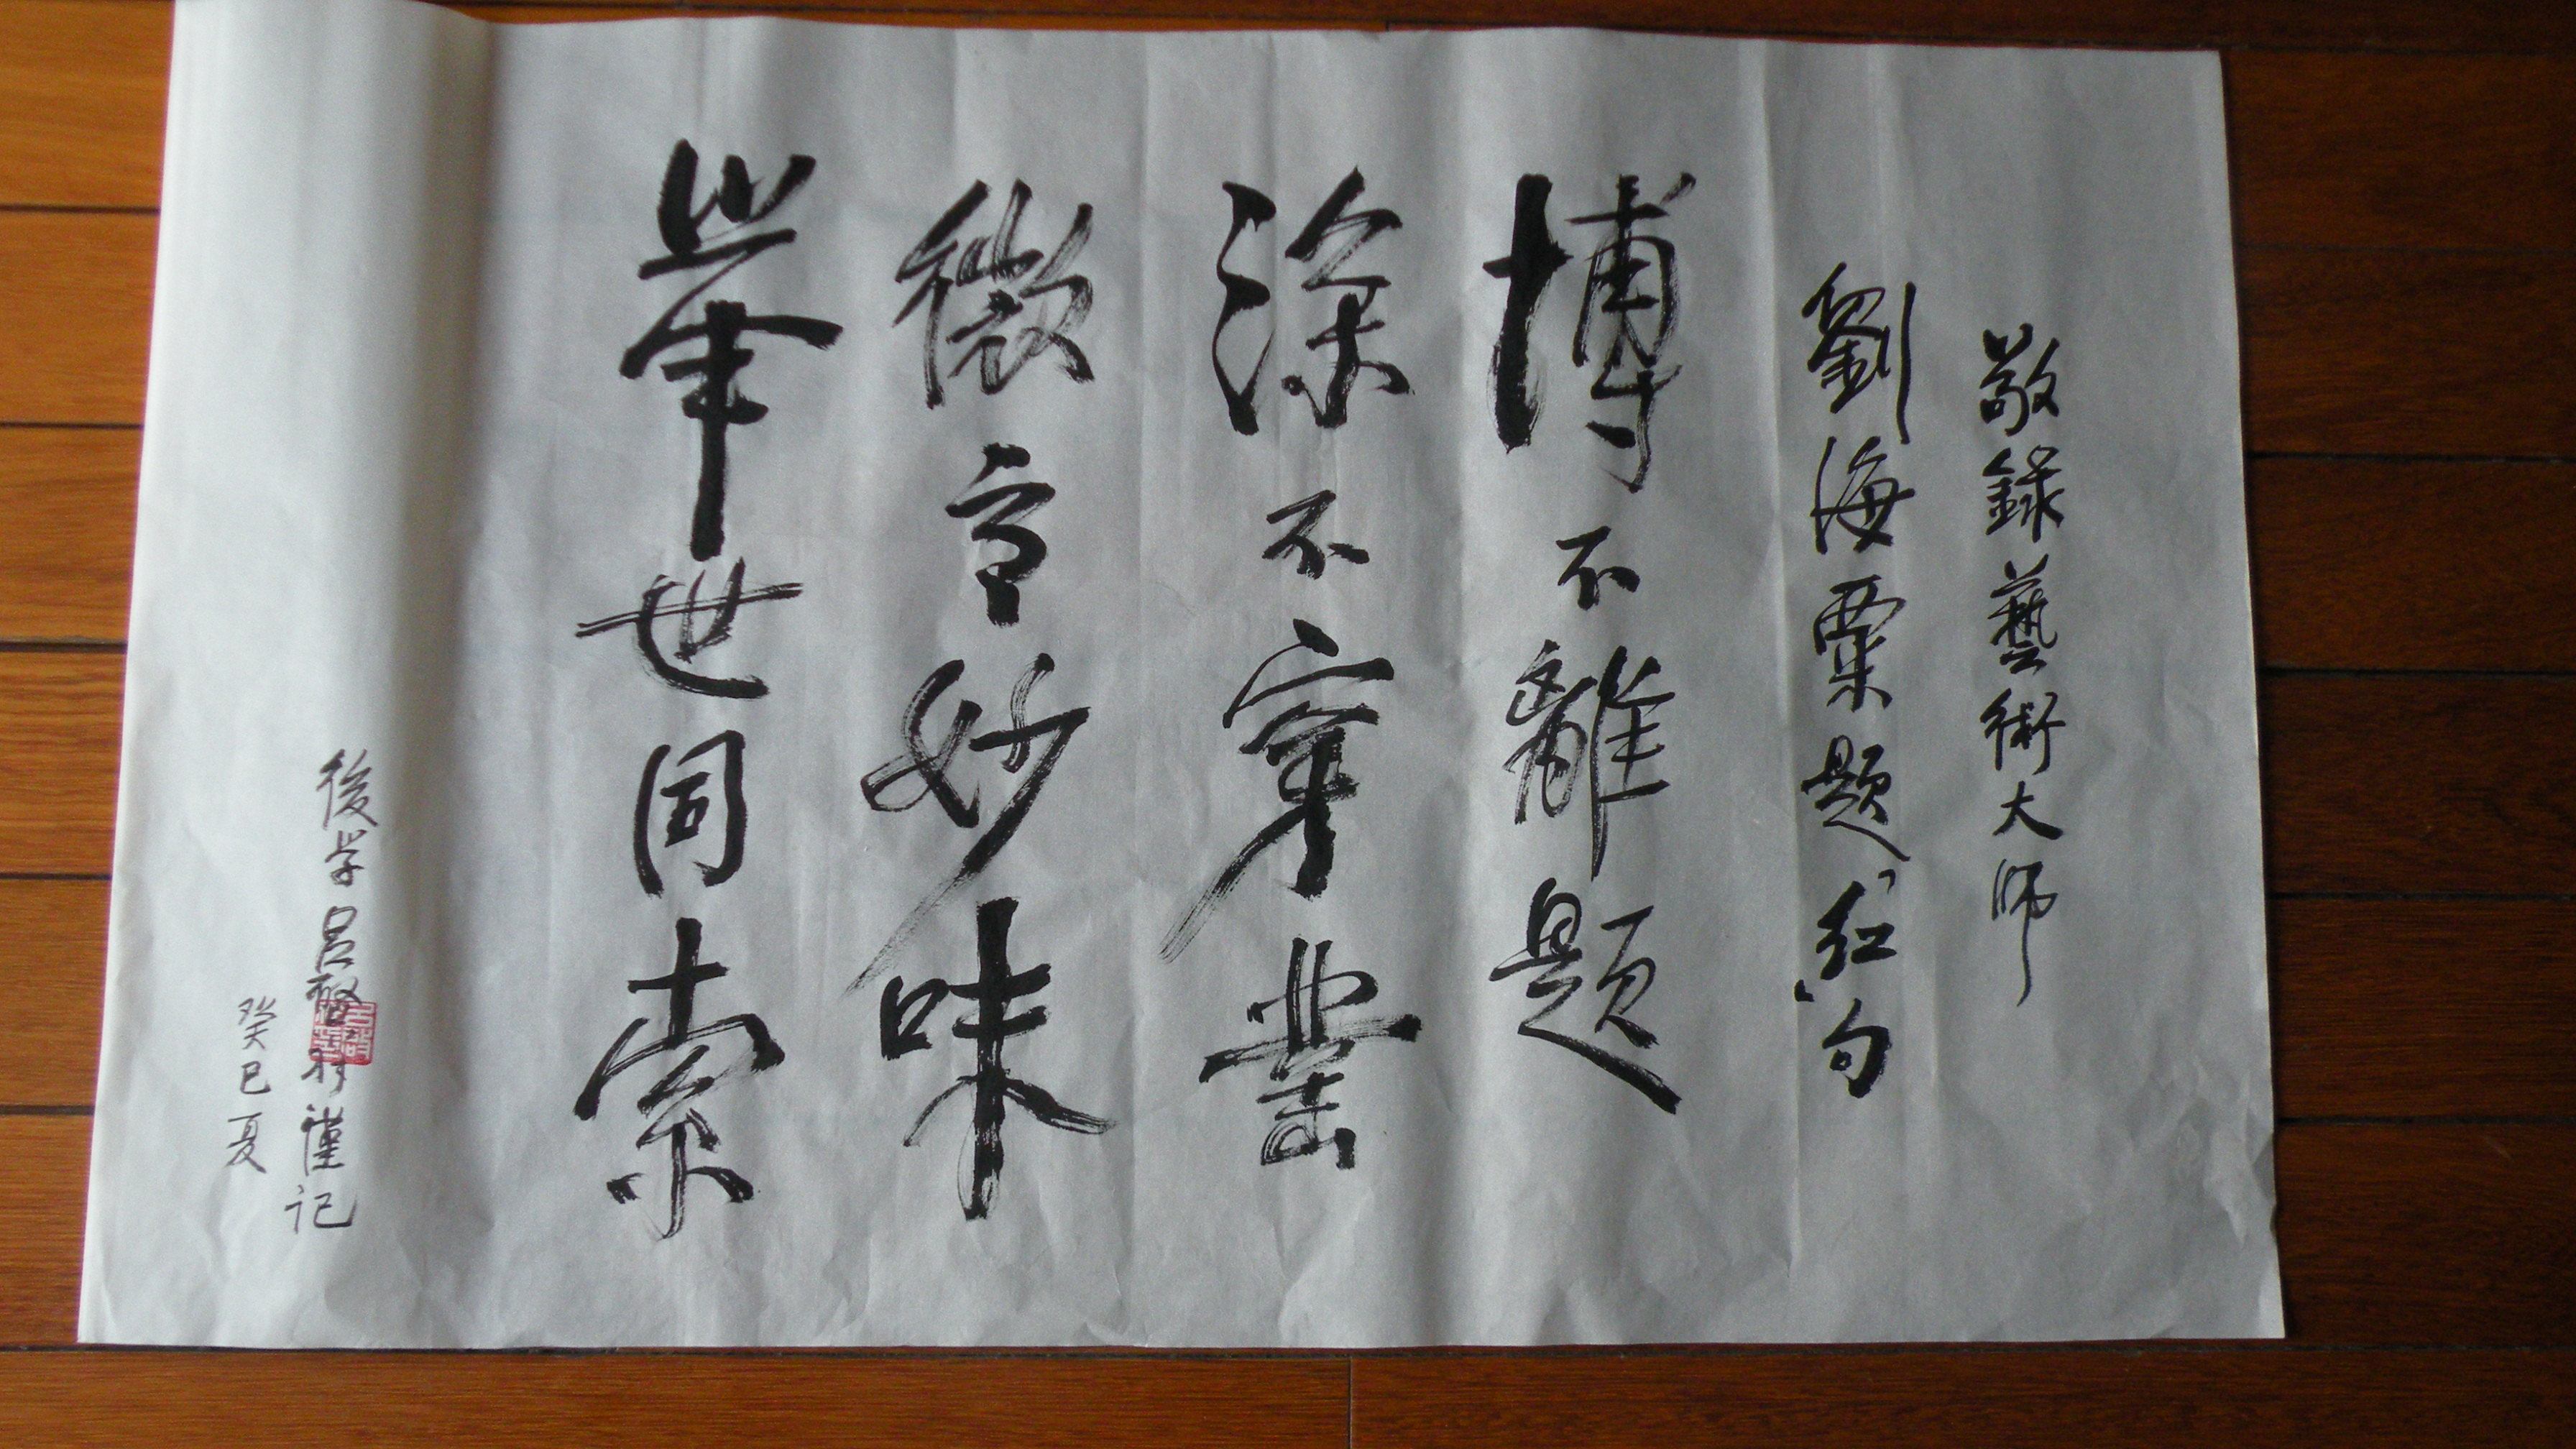 敬錄藝術大師
劉海粟題“紅”句
博不離題
深不穿鑿
微言妙味
舉世同索
後学吕啓祥谨记
癸巳夏